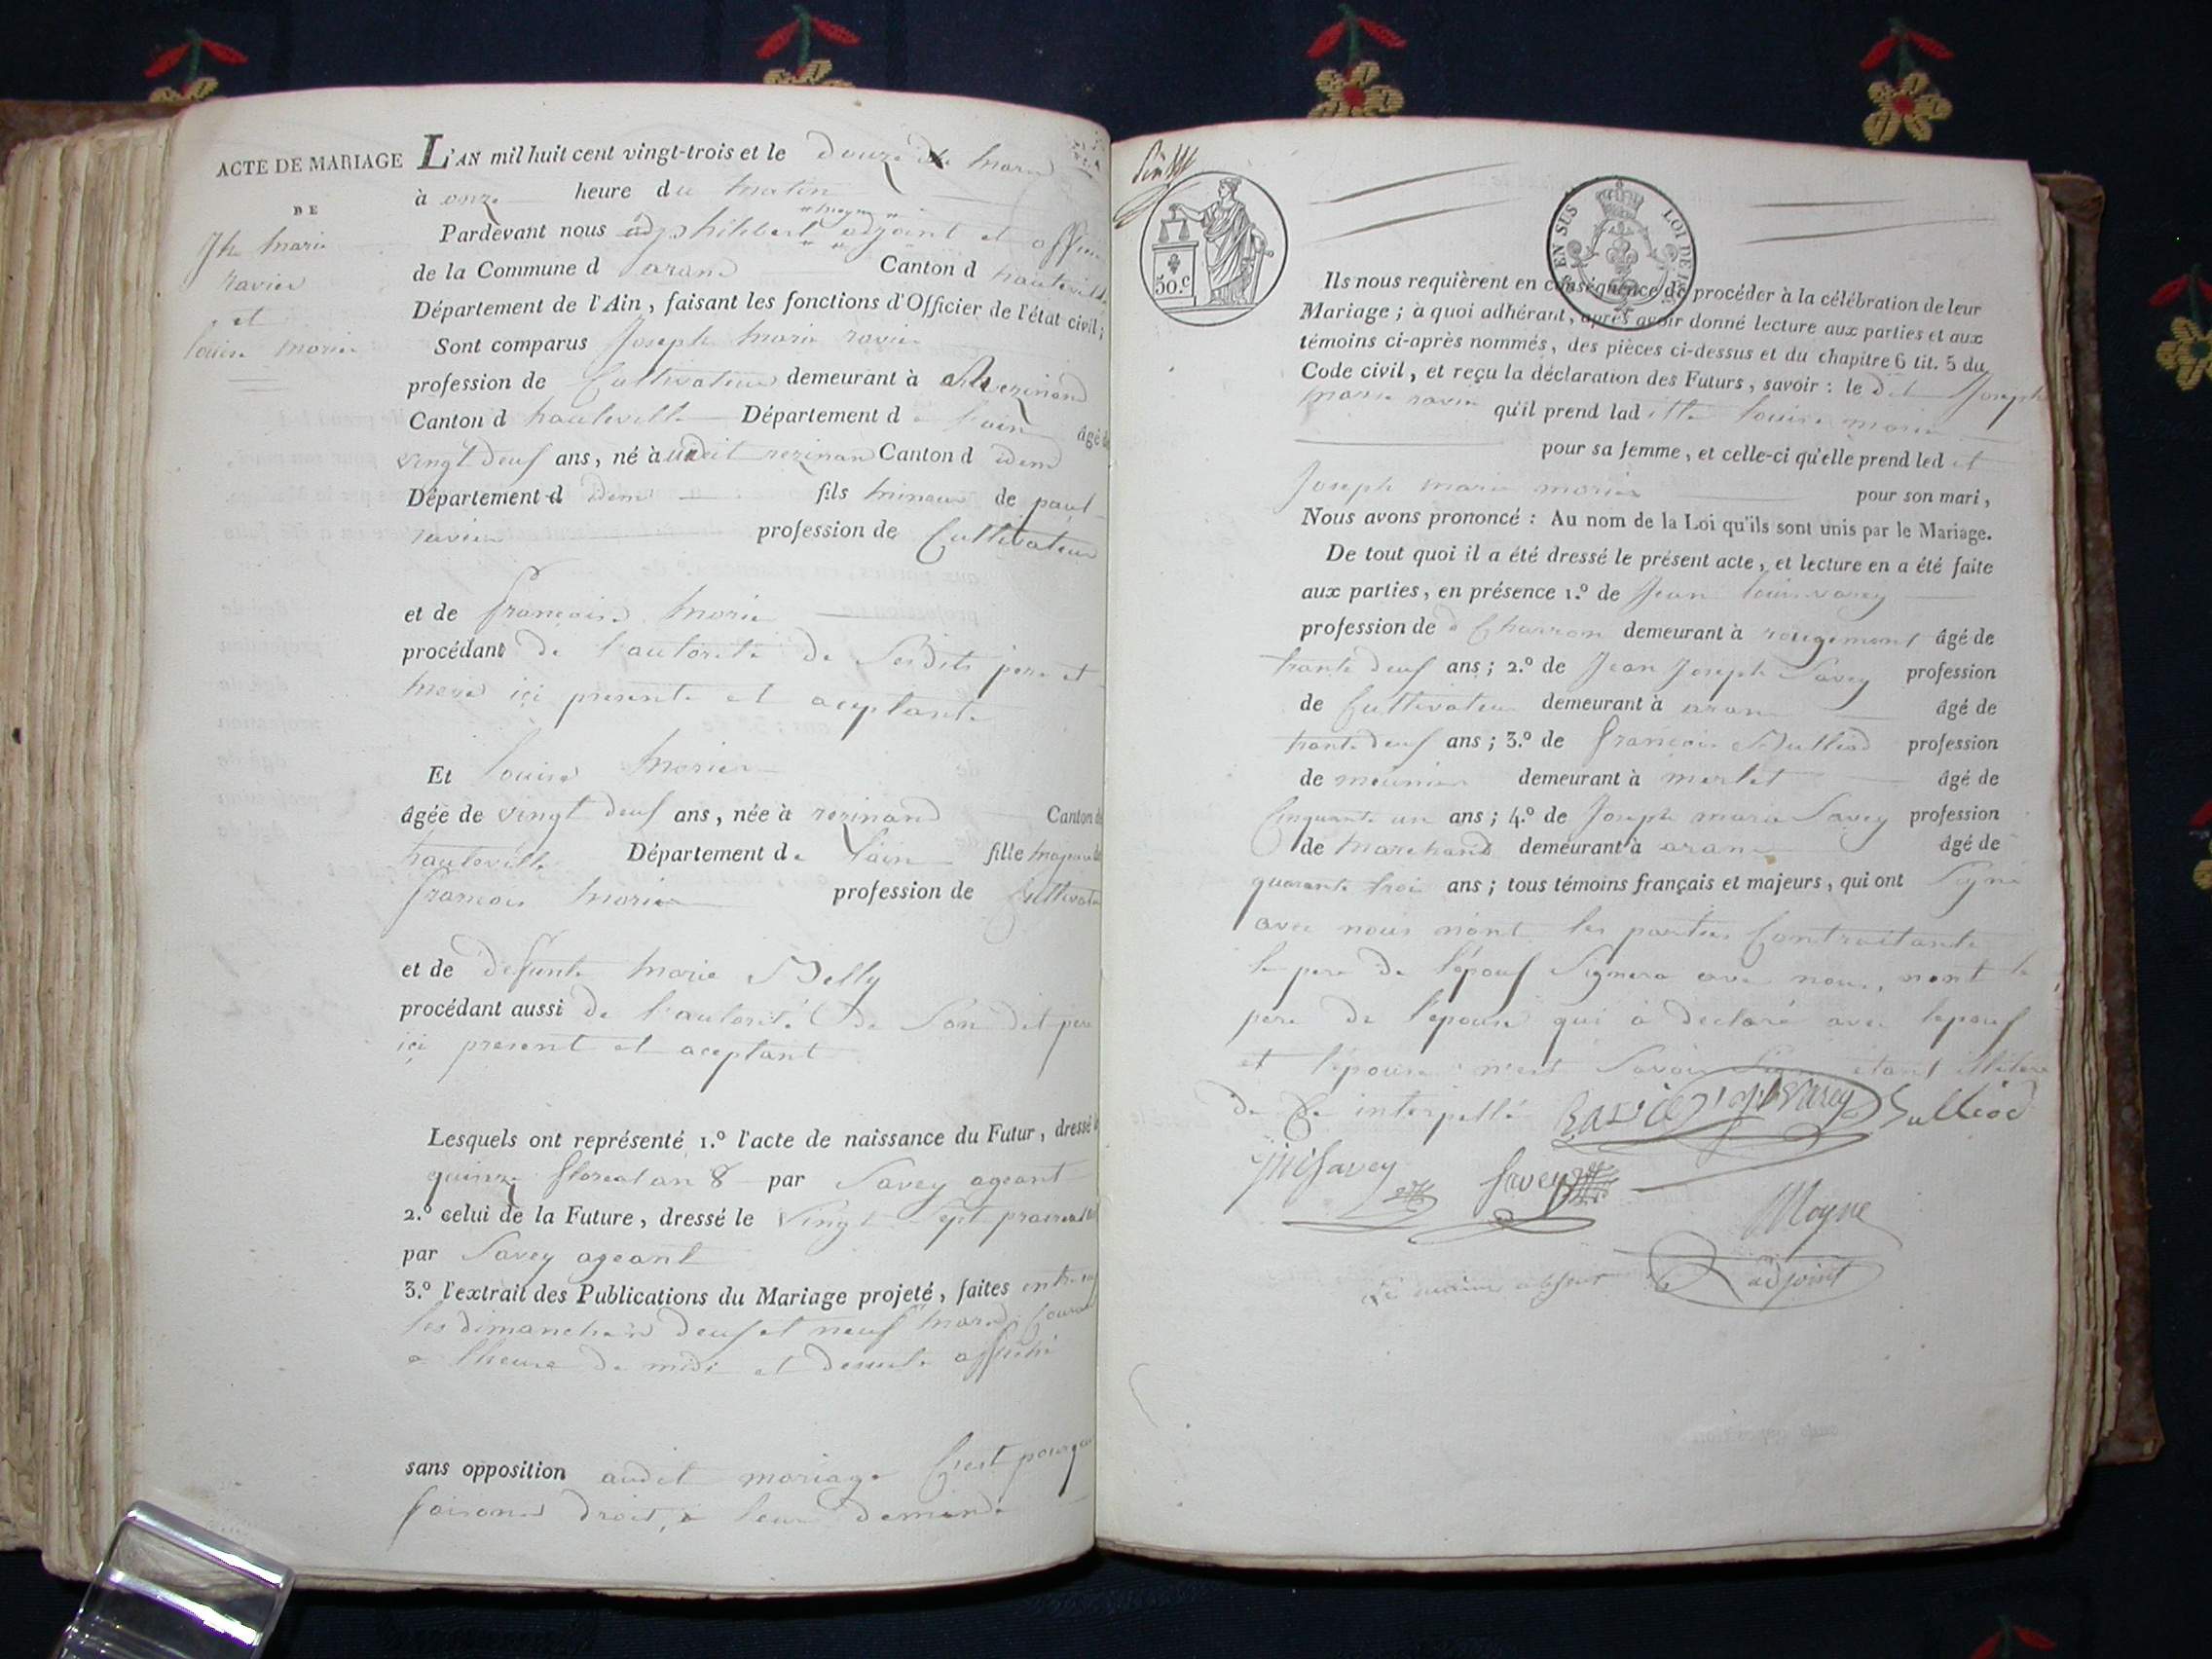 ACTE DE MARIAGE
DE
Jh marie
ravier
et
louise morier
L'AN mil huit cent vingt-trois et le douze mars
à onze heure du matin
Pardevant nous philibert moyne adjoint et officier
de la Commune d aran Canton d hauteville
Département de l'Ain, faisant les fonctions d'Officier de l'état civil;
Sont comparus Joseph marie ravier
profession de Cultivateur demeurant à rezinand
Canton d hauteville Département de l'ain âgé de
vingt deuf ans, né audit rezinan Canton d idem
Département d idem fils mineur de paul
ravier profession de Cultivateur
et de françoise morier
procédant de l'autorité de Sesdits pere et
mere ici presente et aceptante
Et louise morier
âgée de vingt deuf ans, née à rezinand Canton de
hauteville Département de l'ain fille majeure de
francois morier profession de Cultivateur
et de defunte marie Belly
procédant aussi de l'autorité de Son dit pere
ici present et aceptant
Lesquels ont représenté, 1.º l'acte de naissance du Futur, dressé le
quinze floreal an 8 par Savey ageant
2.º celui de la Future, dressé le vingt Sept prairial
par Savey ageant
3.º l'extrait des Publications du Mariage projeté, faites
les dimanches deuf et neuf mars Courant
a l'heure de midi et desuite affiché
sans opposition audit mariage C'est pourquoi
faisons droit, a leur demande
50.C
EN SUS LOI DE
Ils nous requièrent en conséquence de procéder à la célébration de leur
Mariage; à quoi adhérant, après avoir donné lecture aux parties et aux
témoins ci-après nommés, des pièces ci-dessus et du chapitre 6 tit. 5 du
Code civil, et reçu la déclaration des Futurs, savoir : le dit Joseph
marie ravier qu'il prend laditte louise morier
pour sa femme, et celle-ci qu'elle prend ledit
Joseph marie morier pour son mari,
Nous avons prononcé : Au nom de la Loi qu'ils sont unis par le Mariage.
De tout quoi il a été dressé le présent acte, et lecture en a été faite
aux parties, en présence 1.º de Jean louis varey
profession de Charron demeurant à rougemont âgé de
trante deuf ans; 2.º de Jean Joseph Savey profession
de Cultivateur demeurant à aran âgé de
trante deuf ans; 3.º de françois Sulliod profession
de meunier demeurant à merlet âgé de
Cinquante un ans; 4.º de Joseph marie Savey profession
de marchand demeurant à aran âgé de
quarante trois ans; tous témoins français et majeurs, qui ont Signé
avec nous n'ont les parties Contraitante
le pere de l'epouf Signera avec nous, nont le
pere de l'epouse qui à declaré avec lepouf
et l'epouse n'est Savoir Signe etant illitere
de Ce interpellé Ravier Varey Sulliod
Savey Savey
Moyne
adjoint
Le maire absent